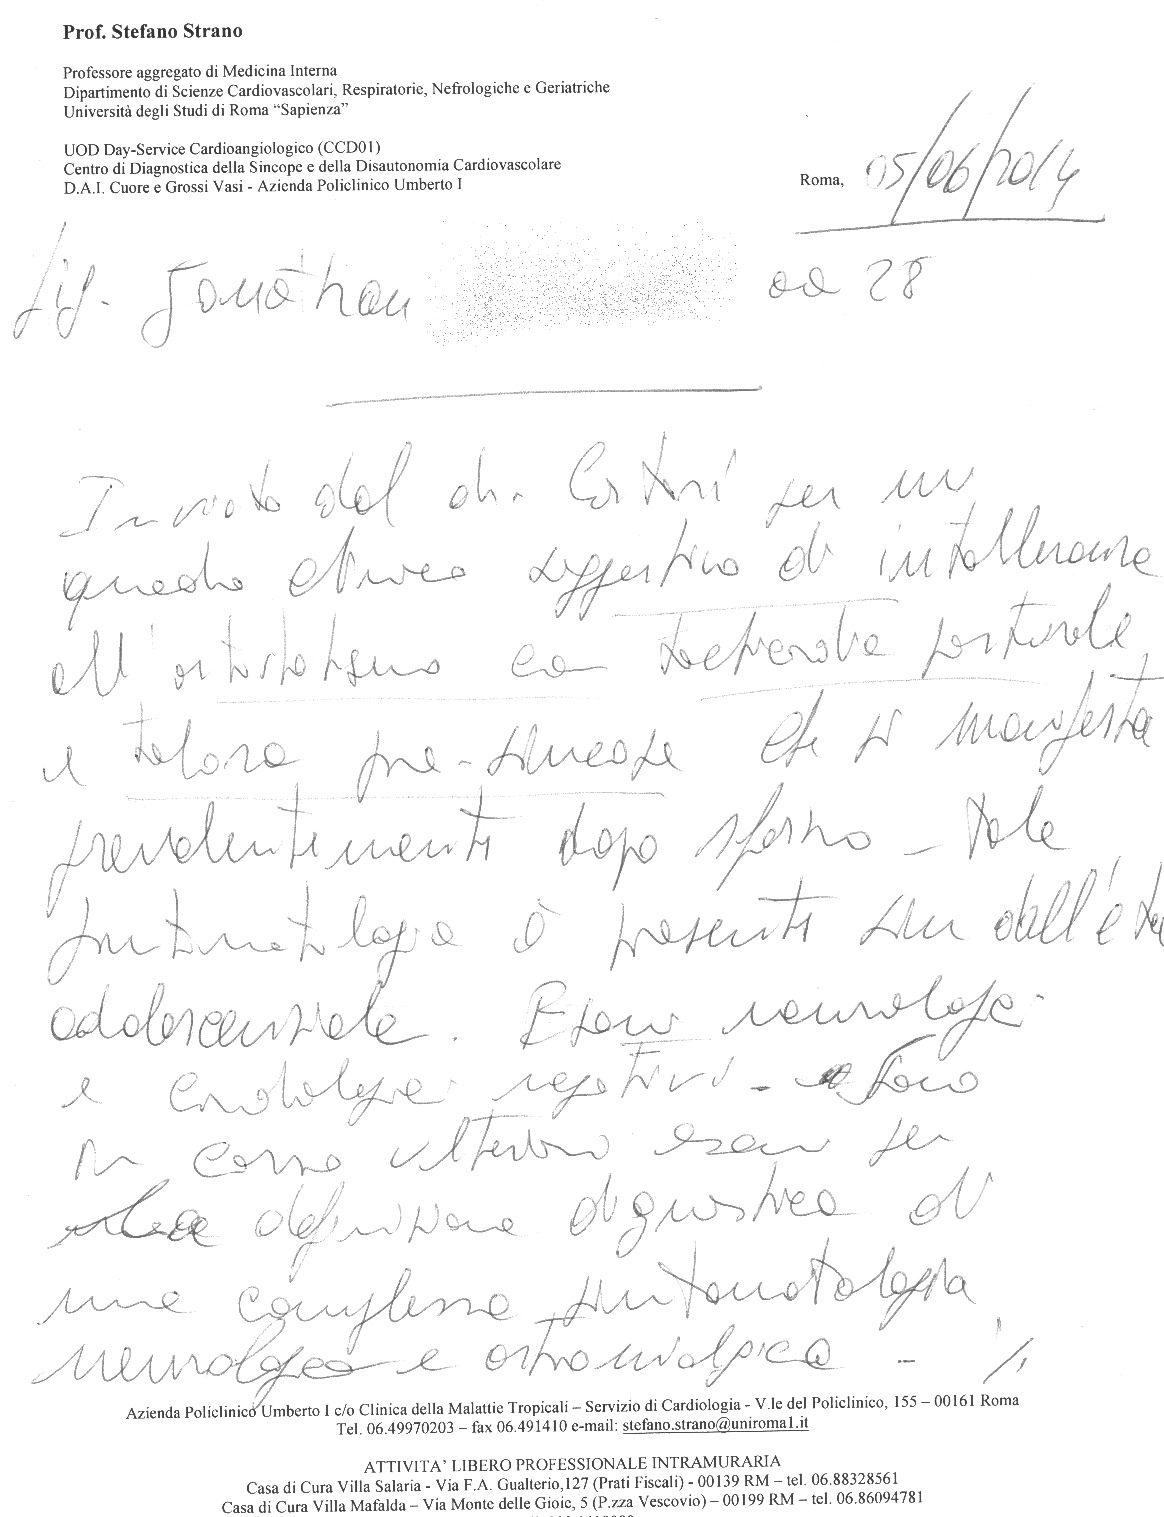 Prof. Stefano Strano
Professore aggregato di Medicina Interna
Dipartimento di Scienze Cardiovascolari, Respiratorie, Nefrologiche e Geriatriche
Università degli Studi di Roma “Sapienza”
UOD Day-Service Cardioangiologico (CCD01)
Centro di Diagnostica della Sincope e della Disautonomia Cardiovascolare
D.A.I. Cuore e Grossi Vasi - Azienda Policlinico Umberto I
Roma, 05/06/2014
Sig. Jonathan aa 28
Inviato dal dr. per un
quadro clinico suggestivo di intolleranza
all'ortostatismo con tachicardia posturale
e talora pre-sincope che si manifesta
prevalentemente dopo sforzo - Tale
sintomatologia è presente sin dall'età
adolescenziale. Esami neurologici
e cardiologici negativi - Sono
in corso ulteriori esami per
la definizione diagnostica di
una complessa sintomatologia
neurologica e osteomialgica - ./.
Azienda Policlinico Umberto I c/o Clinica della Malattie Tropicali – Servizio di Cardiologia - V.le del Policlinico, 155 – 00161 Roma
Tel. 06.49970203 – fax 06.491410 e-mail: stefano.strano@uniroma1.it
ATTIVITA’ LIBERO PROFESSIONALE INTRAMURARIA
Casa di Cura Villa Salaria - Via F.A. Gualterio,127 (Prati Fiscali) - 00139 RM – tel. 06.88328561
Casa di Cura Villa Mafalda – Via Monte delle Gioie, 5 (P.zza Vescovio) – 00199 RM – tel. 06.86094781